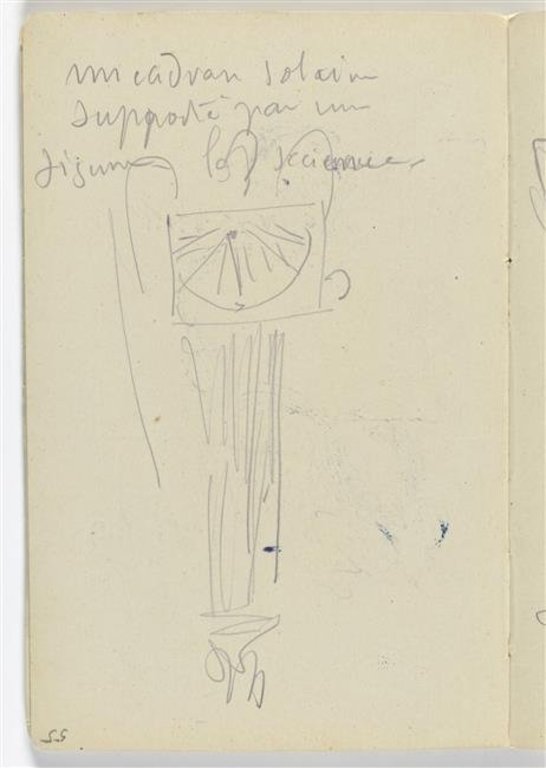 un cadran solaire
supporté par une
figure la science
55